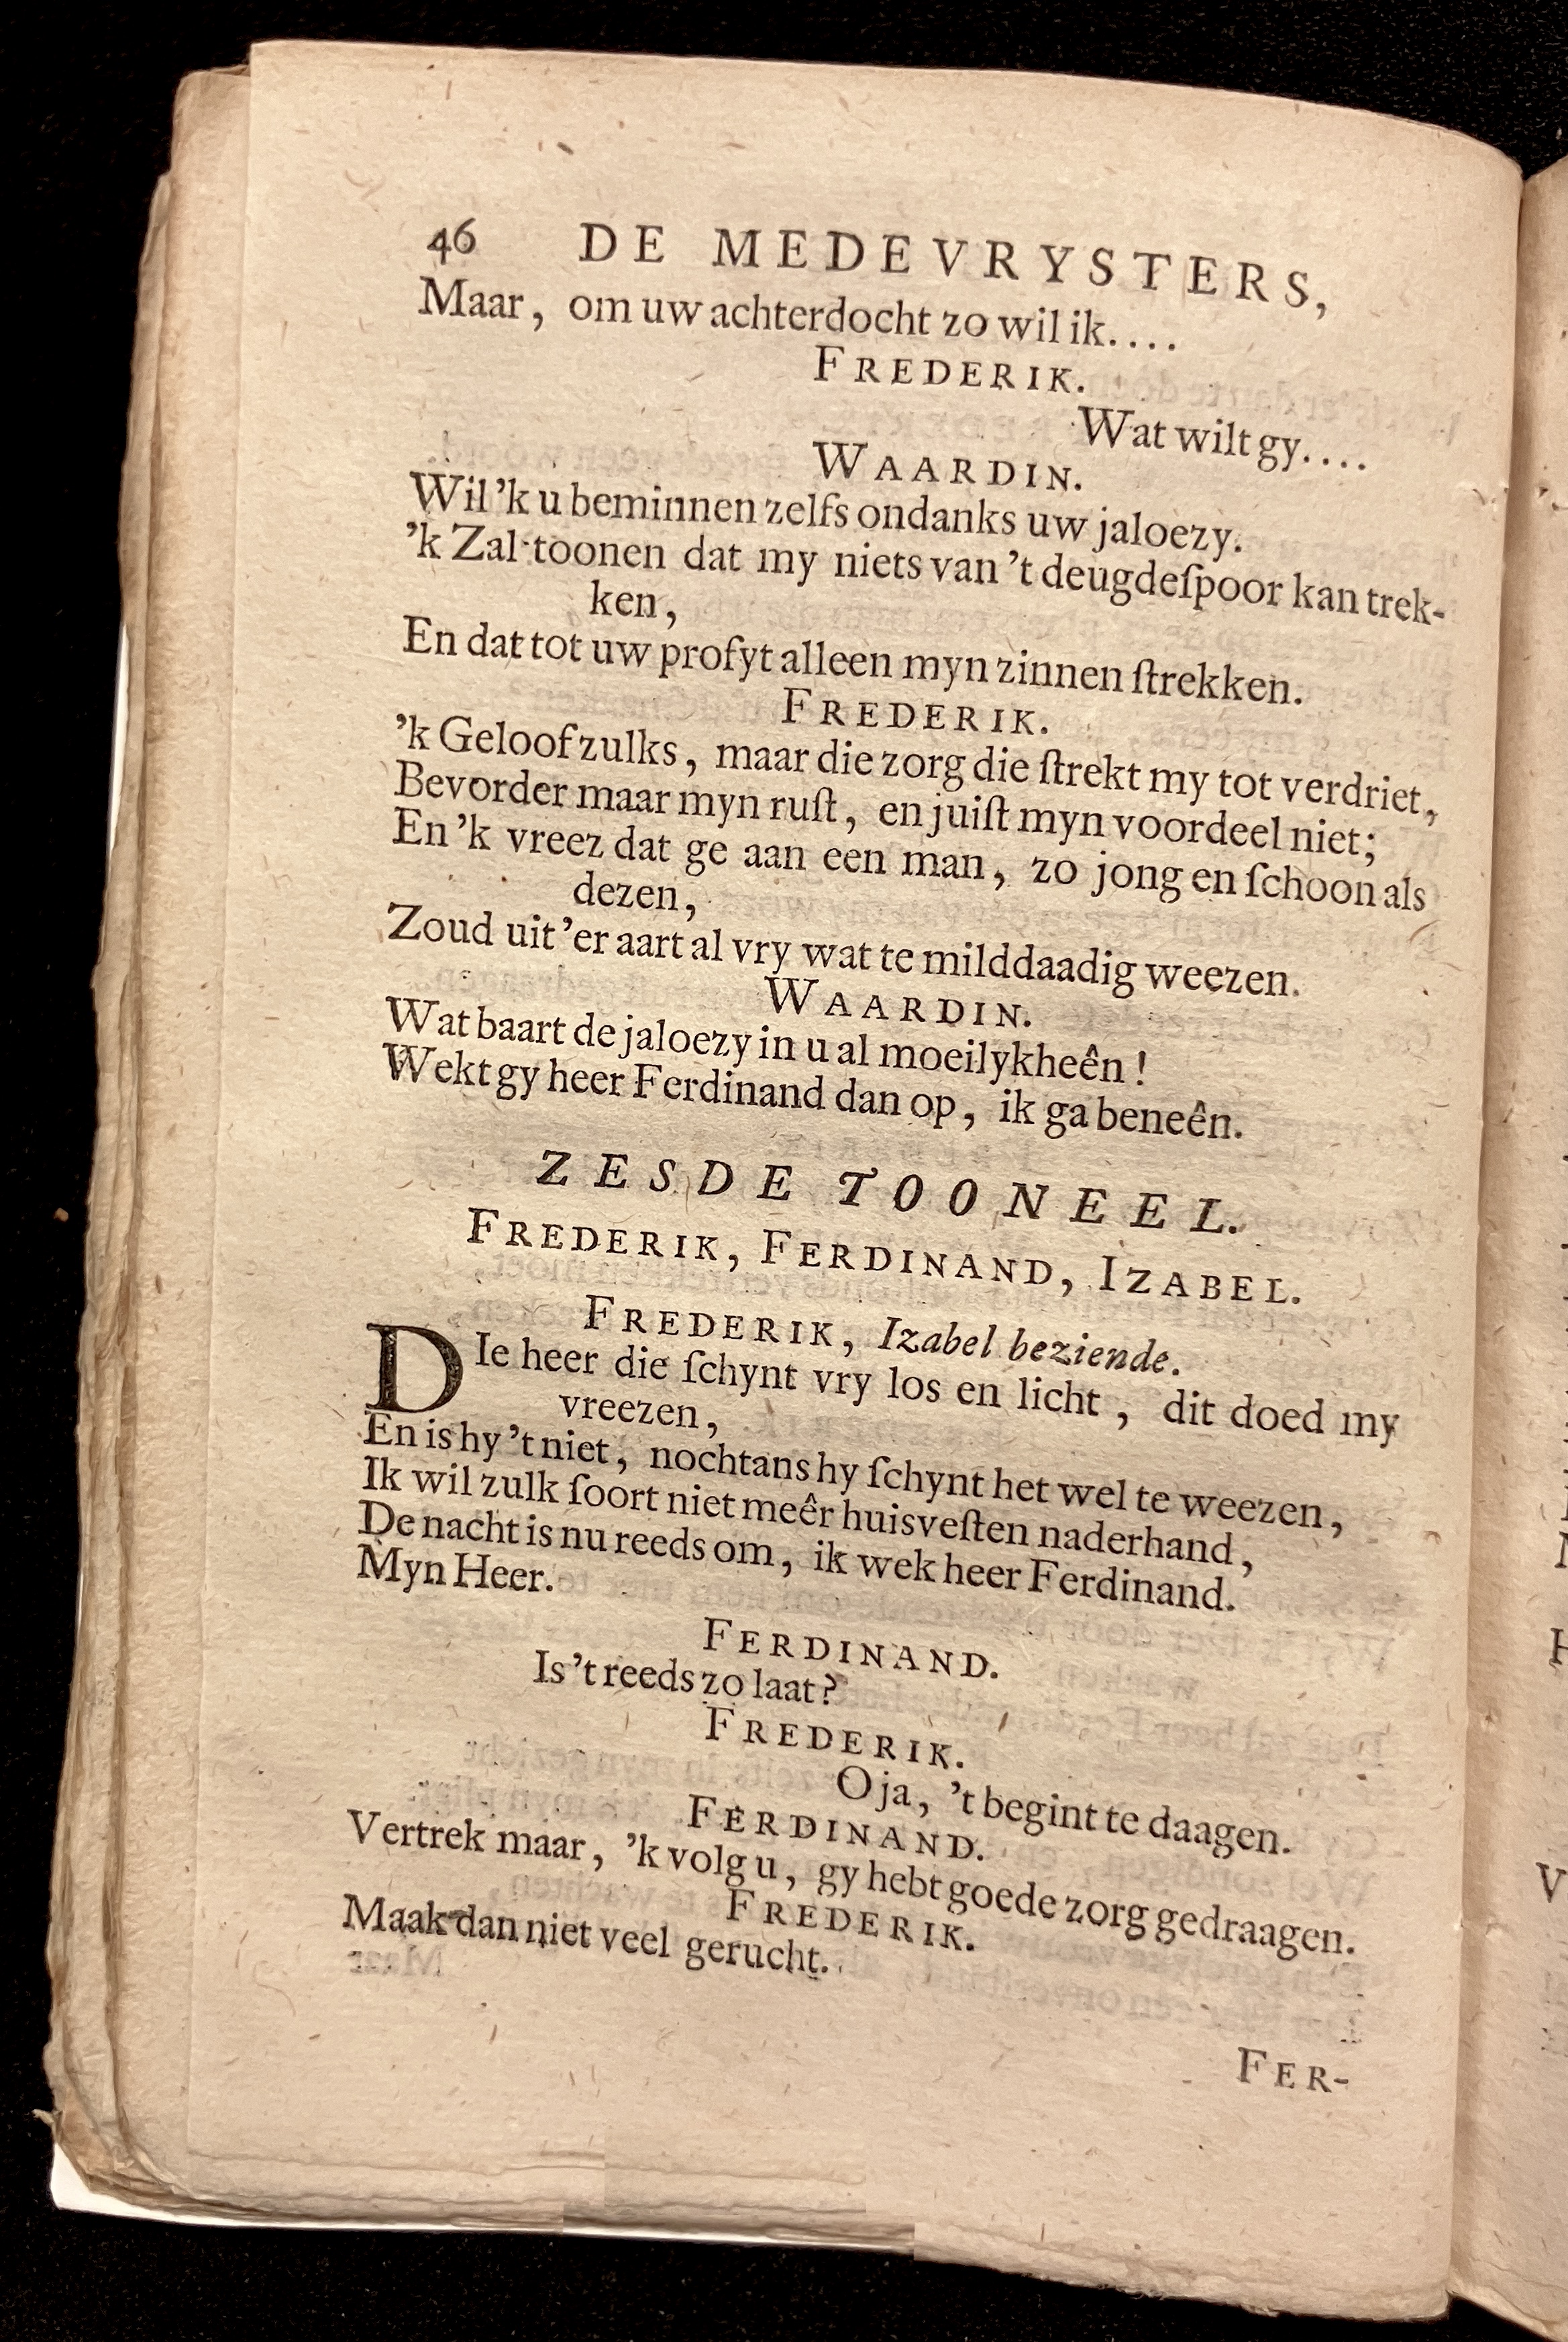 46 DE MEDEVRYSTERS,
Maar, om uw achterdocht zo wil ik....
FREDERIK.
Wat wilt gy....
WAARDIN.
Wil 'k u beminnen zelfs ondanks uw jaloezy.
'k Zal toonen dat my niets van 't deugdeſpoor kan trek-
ken,
En dat tot uw profyt alleen myn zinnen ſtrekken.
FREDERIK.
'k Geloof zulks, maar die zorg die ſtrekt my tot verdriet,
Bevorder maar myn ruſt, en juiſt myn voordeel niet;
En 'k vreez dat ge aan een man, zo jong en ſchoon als
dezen,
Zoud uit 'er aart al vry wat te milddaadig weezen.
WAARDIN.
Wat baart de jaloezy in u al moeilykheên!
Wekt gy heer Ferdinand dan op, ik ga beneên.
ZESDE TOONEEL.
FREDERIK, FERDINAND, IZABEL.
FREDERIK, Izabel beziende.
DIe heer die ſchynt vry los en licht, dit doed my
vreezen,
En is hy 't niet, nochtans hy ſchynt het wel te weezen,
Ik wil zulk ſoort niet meêr huisveſten naderhand,
De nacht is nu reeds om, ik wek heer Ferdinand.
Myn Heer.
FERDINAND.
Is 't reeds zo laat?
FREDERIK.
O ja, 't begint te daagen.
FERDINAND.
Vertrek maar, 'k volg u, gy hebt goede zorg gedraagen.
FREDERIK.
Maak dan niet veel gerucht.
FER-